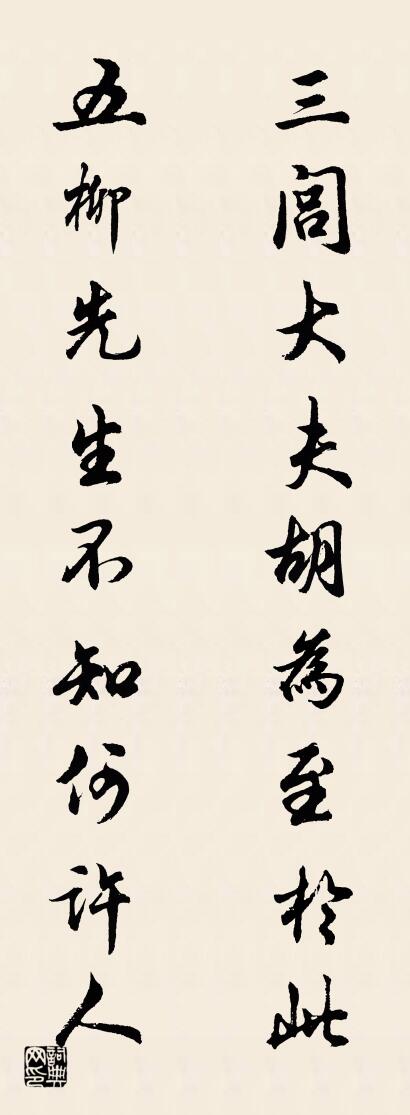 三閭大夫胡為至於此
五柳先生不知何許人
詞典網印